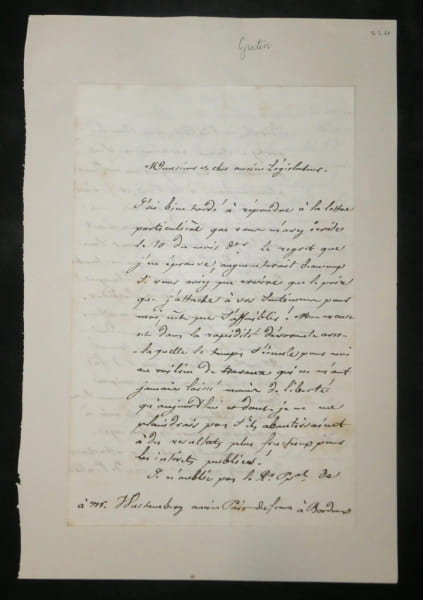 Gutin
324
Monsieur et cher ancien Législateur.
J'ai bien tardé à répondre à la lettre
particulière que vous m'avez écrite
le 10 du mois der. Le regret que
j'en éprouve, augmenterait beaucoup
si vous aviez que le prix
que j'attache à vos pour
moi, s'affaiblir! Mon excuse
est dans la rapidité dévorante avec
laquelle le temps s'écoule pour moi
au milieu de travaux qui ne m'ont
jamais laissé moins de liberté
qu'aujourd'hui et dont je ne me
plaindrais pas s'ils aboutissaient
à des résultats plus fructueux pour
les intérêts publics!
Je n'oublie pas le de
à mr. Wustenberg ancien Pair de france à Bordeaux